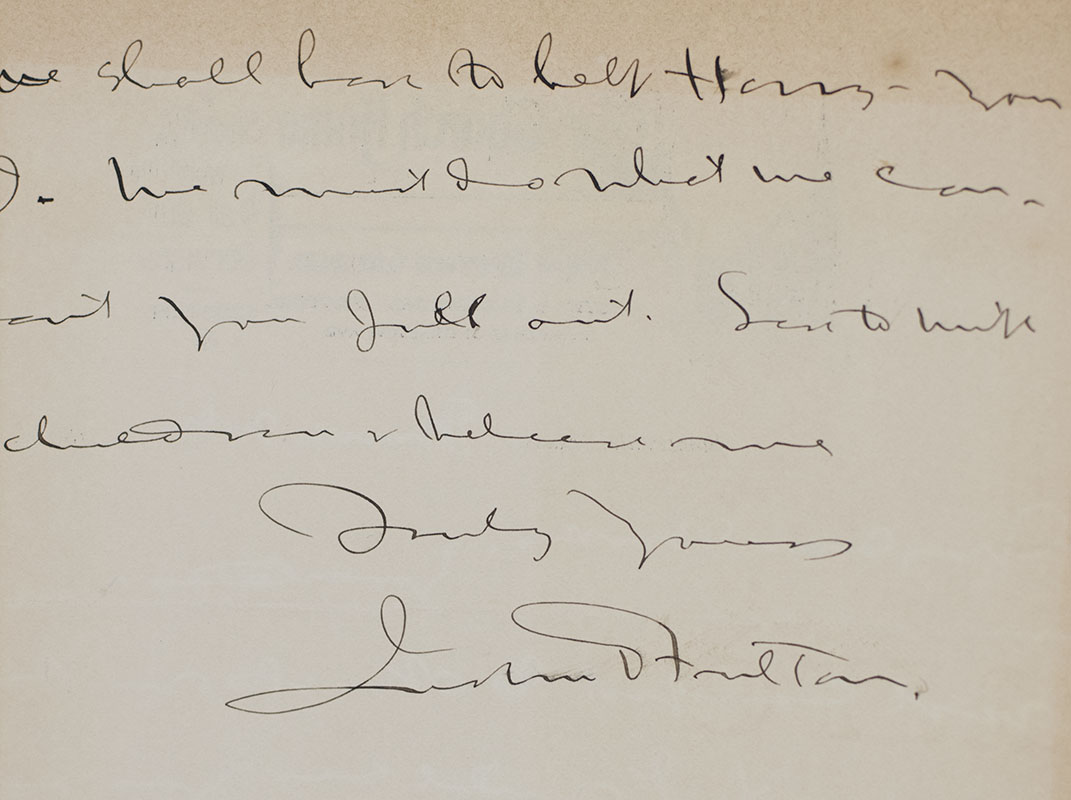 we shall have to help Harry - you
. We must do what we can.
you full out. to wife
children & believe me
Truly Yours
Fulton.